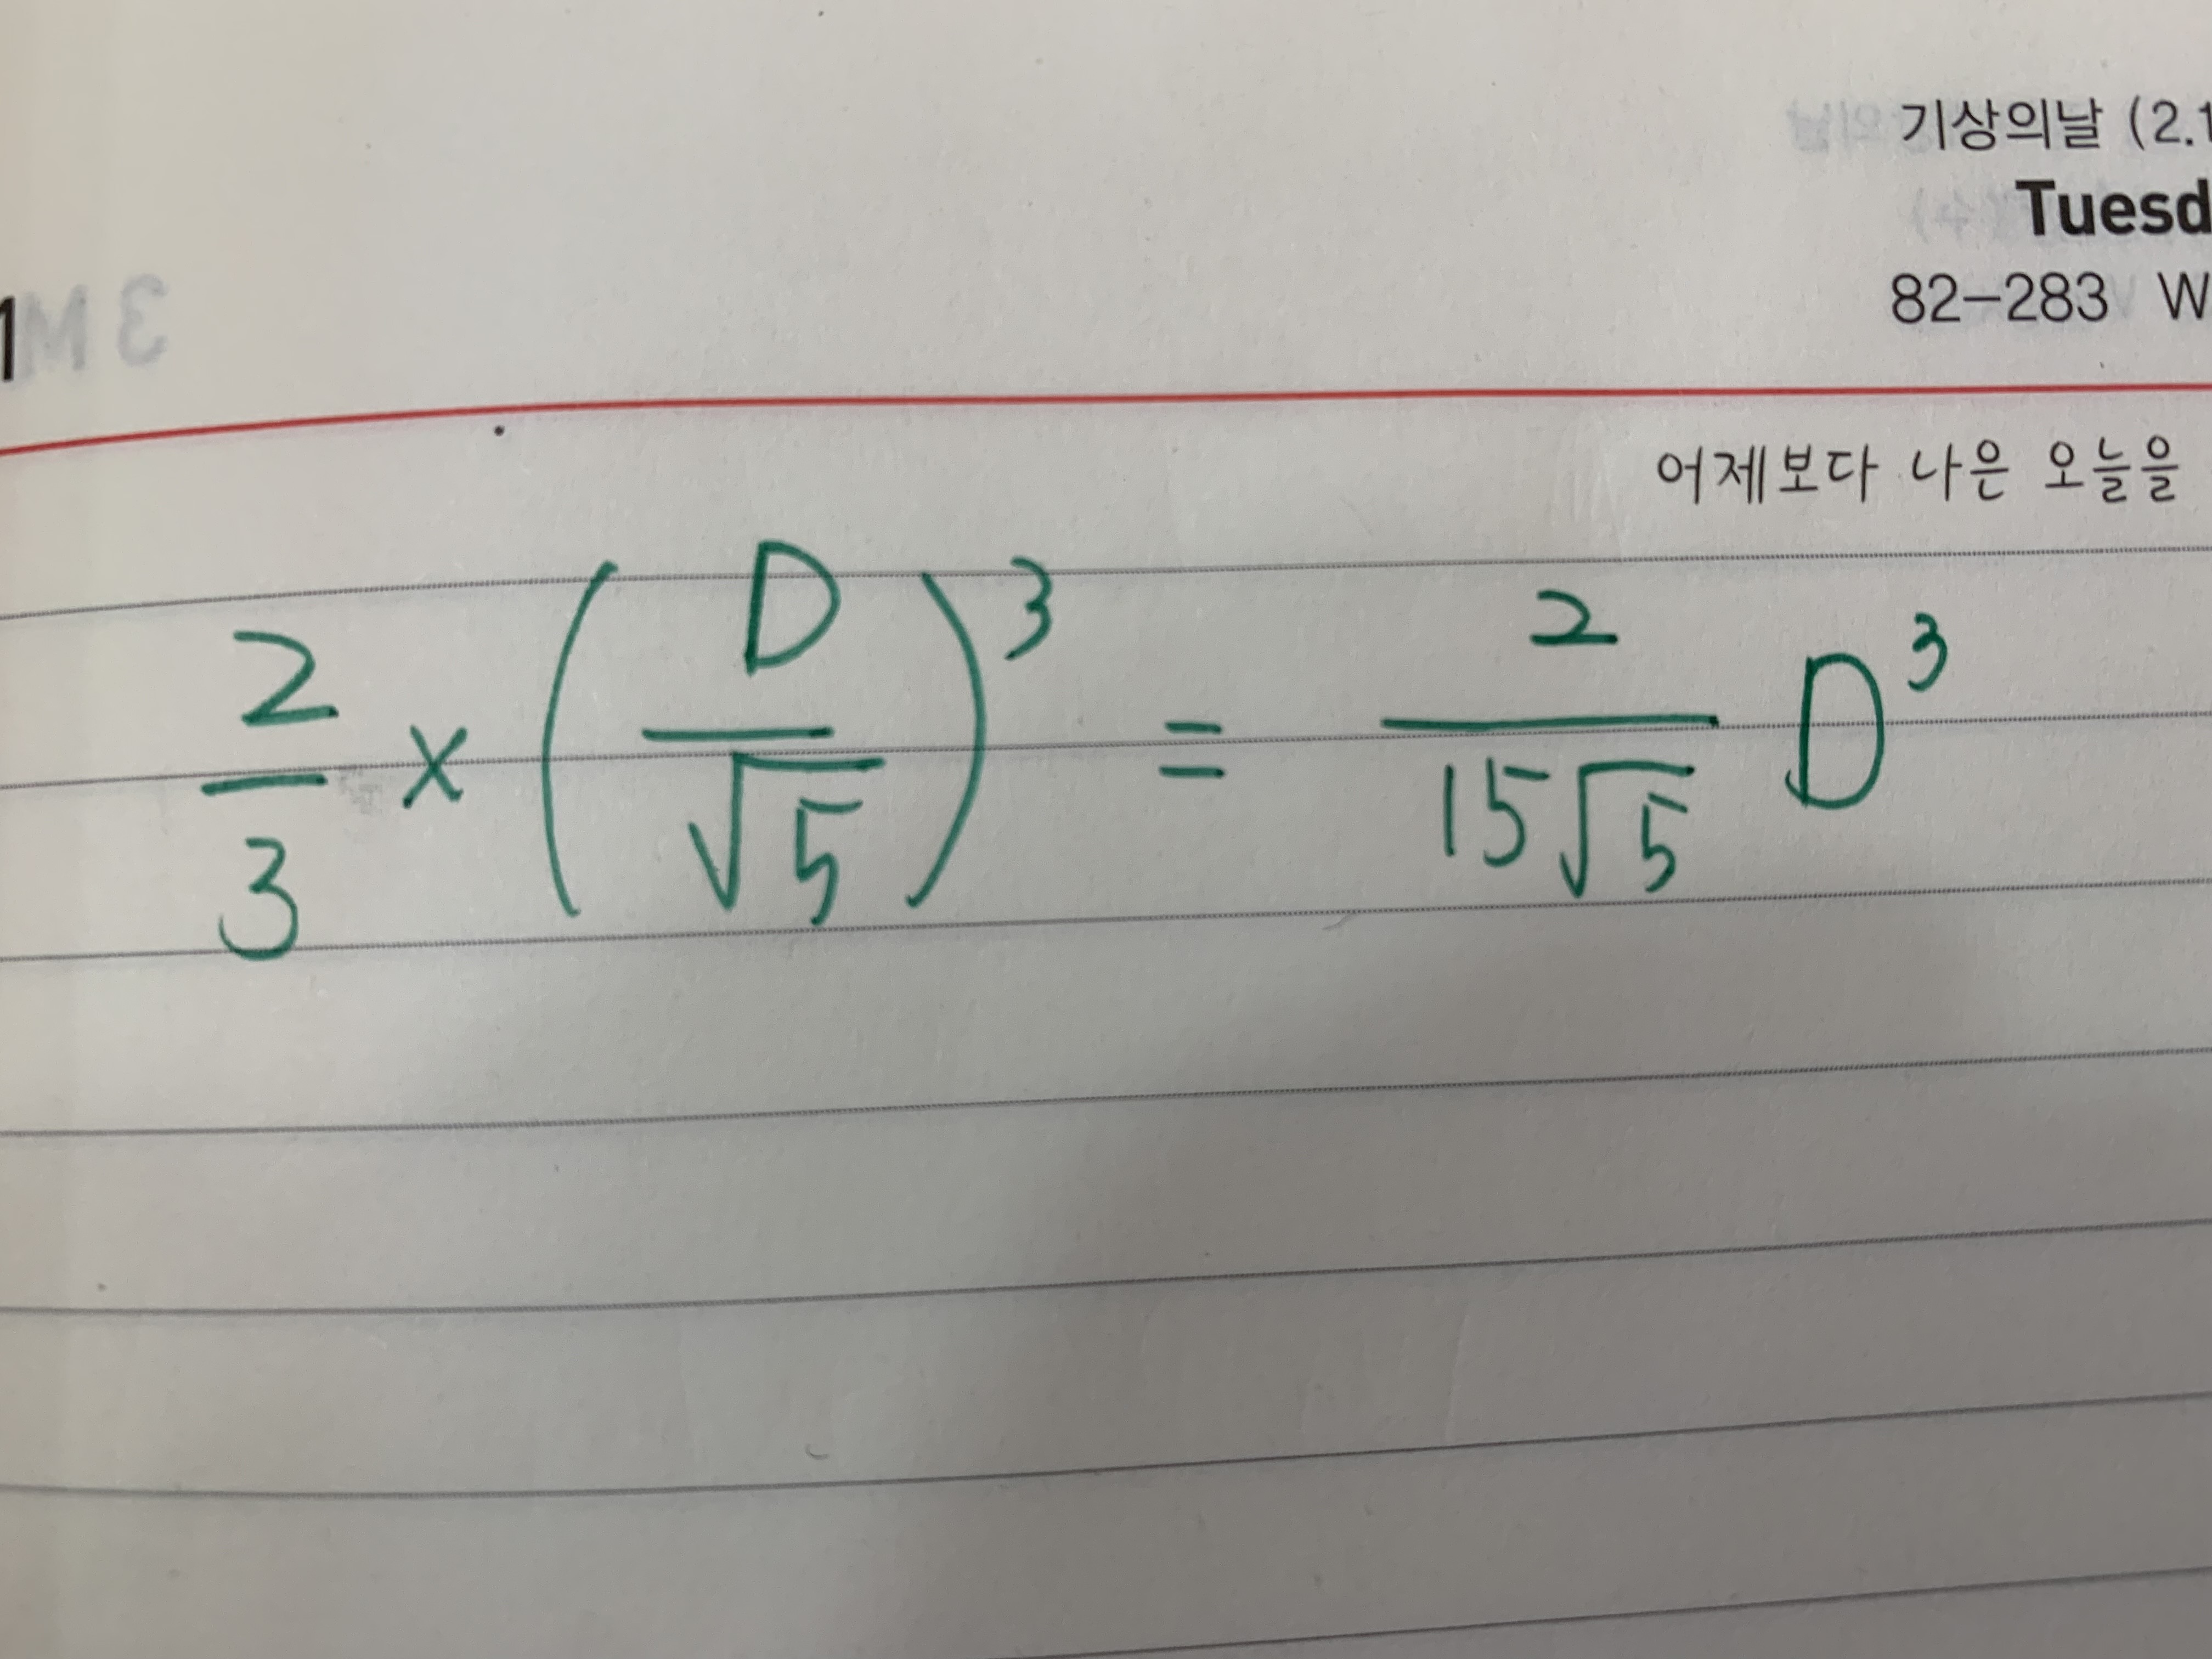 기상의날 (2.1
Tuesd
82-283 W
1
어제보다 나은 오늘을
2/3 × (D/√5)³ = 2/(15√5) D³